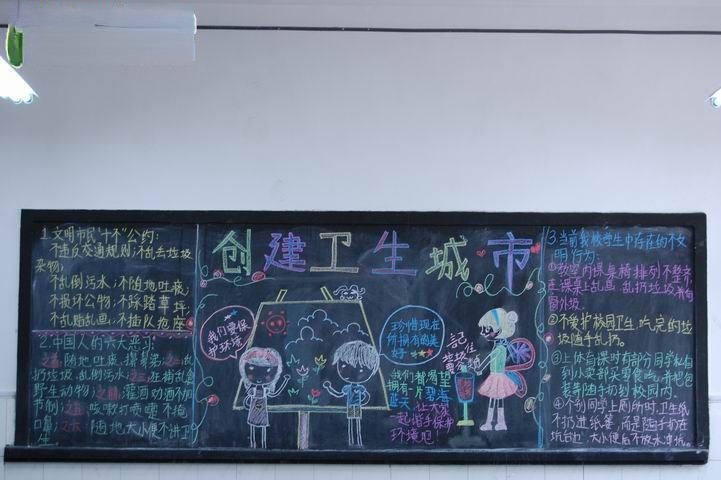 创建卫生城市
1.文明市民"十不"公约:
不违反交通规则;不乱丢垃圾
杂物;
不乱倒污水;不随地吐痰
不损坏公物;不踩踏草坪;
不乱贴乱画;不插队抢座
2.中国人的六大恶习
随地吐痰
乱
扔垃圾 乱倒污水;
捕乱食
野生动物;
酒劝酒不加
节制;
咳嗽打喷嚏不掩
口鼻;之六:随地大小便不讲卫
生
我们要保
护环境
珍惜现在
所拥有的美
好
我们都渴望
拥有一片碧海
蓝天 让大家
一起携手保护
环境吧!
记住
垃圾
3.当前我校学生中存在的不文
明行为:
①教室内课桌椅排列不整齐,
在课桌上乱画.乱扔垃圾
窗外圾
②不爱护校园卫生.吃完的垃
圾随手乱扔。
③上体育课时有部分同学私自
到小卖部买零食吃,并把包
装袋随手扔到校园内.
④个别同学上厕所时,卫生纸
不扔进纸篓,而是随手扔在
坑台边.大小便后不放水冲坑。